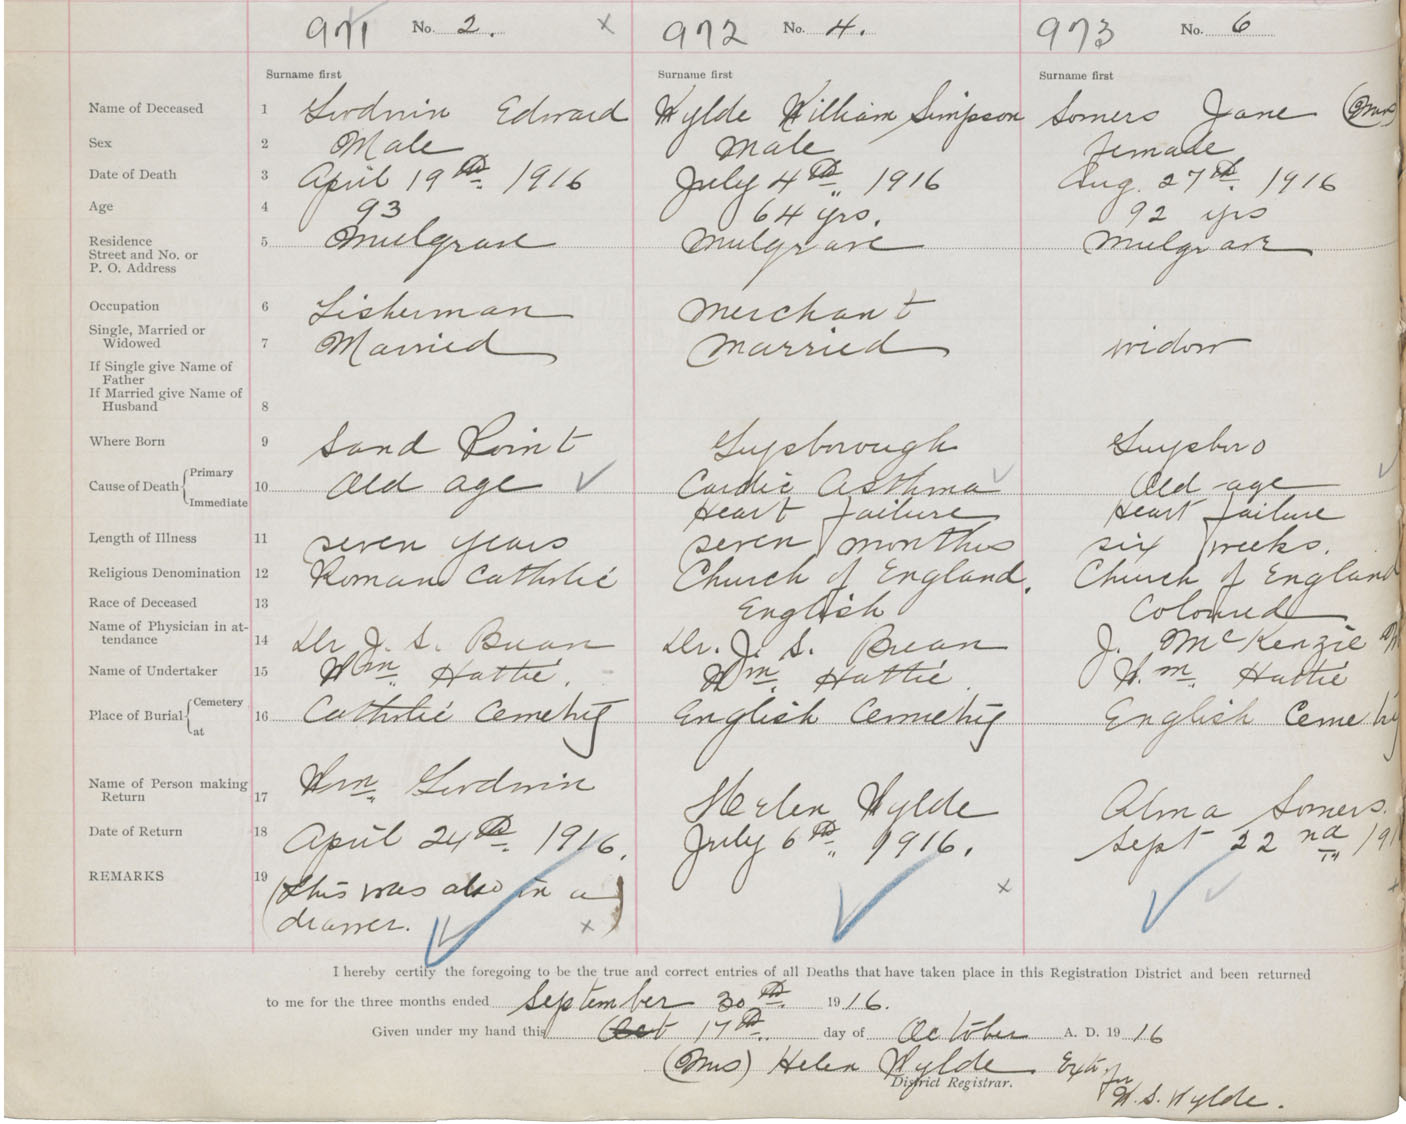 971 No. 2. x 972 No. 4. 973 No. 6
Surname first Surname first Surname first
Name of Deceased 1 Goodwin Edward Wylde William Simpson Somers Jane (Mrs)
Sex 2 Male Male Female
Date of Death 3 April 19th 1916 July 4th 1916 Aug. 27th 1916
Age 4 93 64 yrs. 92 yrs
Residence 5 Mulgrave Mulgrave Mulgrave
Street and No. or
P. O. Address
Occupation 6 Fisherman Merchant
Single, Married or
Widowed 7 Married Married widow
If Single give Name of
Father
If Married give Name of
Husband 8
Where Born 9 Sand Point Guysborough Guysboro
Cause of Death { Primary
10 Old age Cardic Asthma Old age
Immediate Heart failure Heart failure
Length of Illness 11 seven years seven months six weeks.
Religious Denomination 12 Roman Catholic Church of England. Church of England
Race of Deceased 13 English Coloured
Name of Physician in at-
tendance 14 Dr J. S. Brean Dr. J. S. Brean J. McKenzie
Name of Undertaker 15 Wm. Hattie. Wm. Hattie W.m. Hattie
Place of Burial { Cemetery
16 Catholic Cemetry English Cemetry English Cemetry
at
Name of Person making
Return 17 Wm Goodwin Helen Wylde Alma Somers.
Date of Return 18 April 24th 1916. July 6th 1916. Sept 22nd 191
REMARKS 19 (this was also in a x
drawer.) x
I hereby certify the foregoing to be the true and correct entries of all Deaths that have taken place in this Registration District and been returned
to me for the three months ended September 30th 1916.
Given under my hand this Oct 17th day of October A. D. 1916
(Mrs) Helen Wylde Extr. for
District Registrar.
W. S. Wylde.